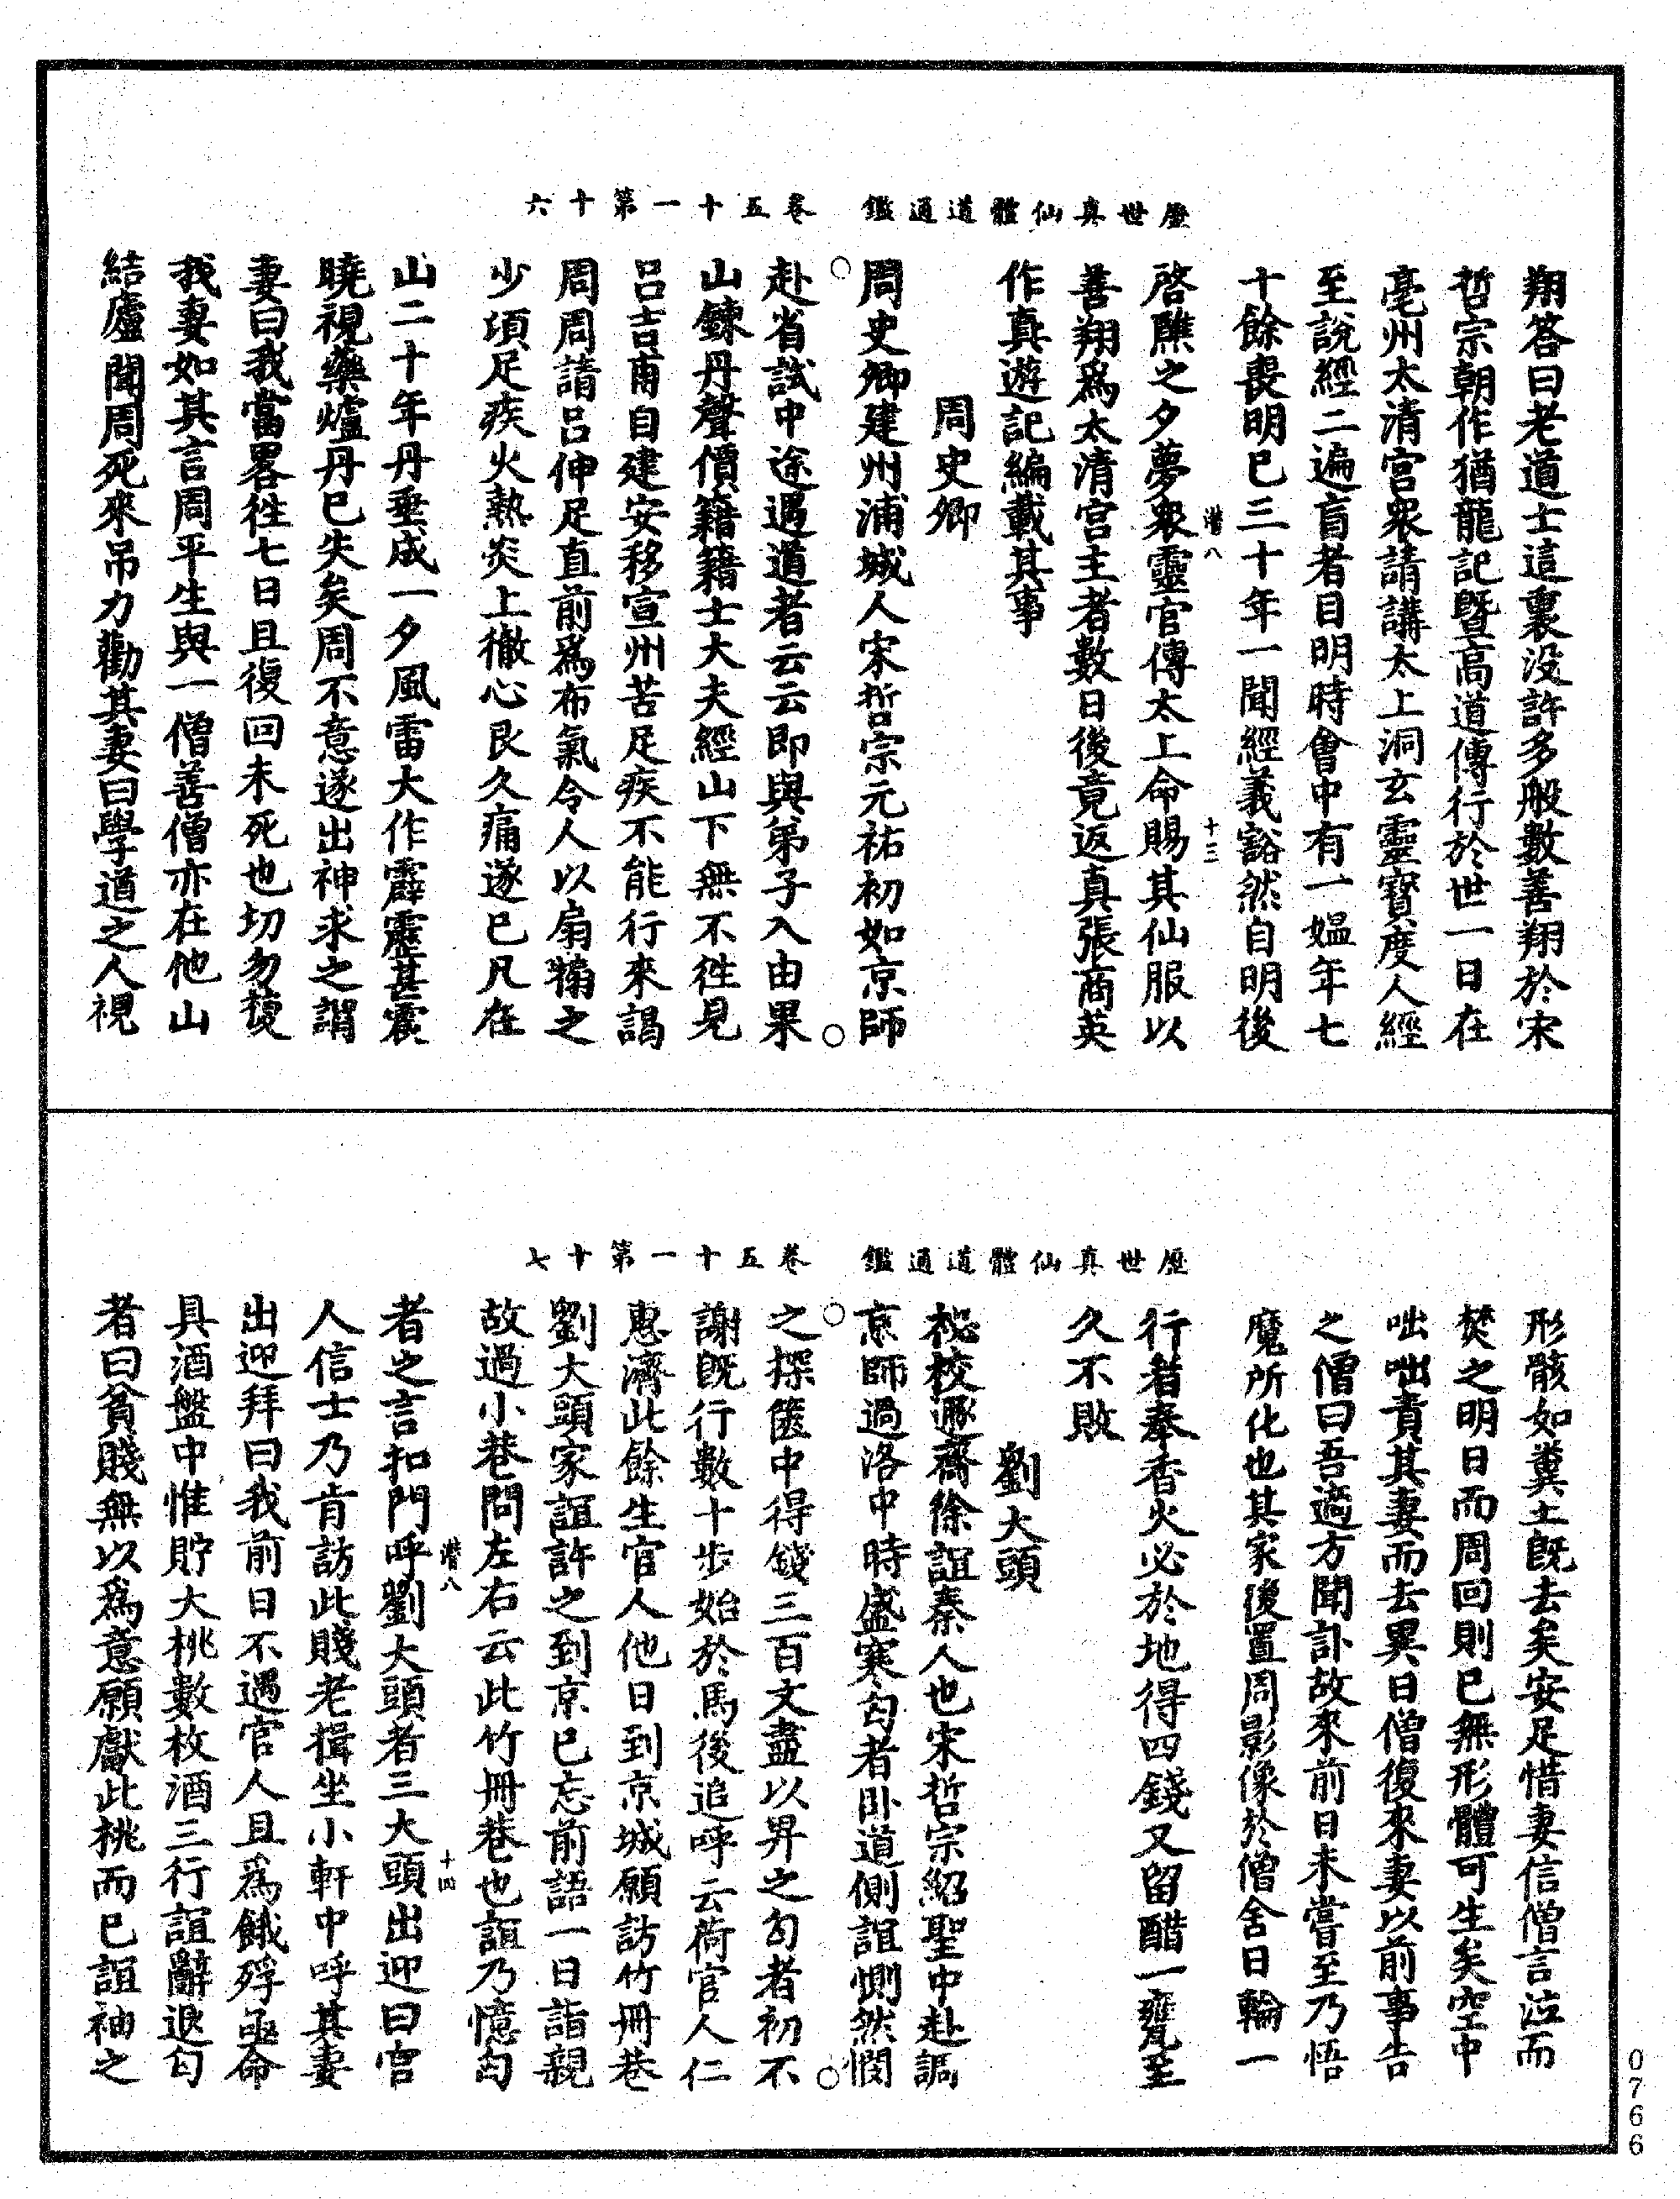 歷世真仙體道通鑑　卷五十一第十六
翔答曰老道士這裏没許多般數善翔於宋
哲宗朝作猶龍記暨高道傳行於世一日在
亳州太清宮衆請講太上洞玄靈寶度人經
至說經二遍盲者目明時會中有一媼年七
十餘喪明已三十年一聞經義豁然自明後
譜八　十三
啓醮之夕夢衆靈官傳太上命賜其仙服以
善翔爲太清宮主者數日後竟返真張商英
作真遊記編載其事
周史卿
周史卿建州浦城人宋哲宗元祐初如京師
赴省試中途遇道者云云即與弟子入由果
山鍊丹聲價籍籍士大夫經山下無不徃見
呂吉甫自建安移宣州苦足疾不能行來謁
周周請呂伸足直前爲布氣令人以扇搧之
少頃足疾火熱炎上徹心良久痛遂已凡在
山二十年丹垂成一夕風雷大作霹靂甚震
曉視藥爐丹已失矣周不意遂出神求之謂
妻曰我當畧徃七日且復回未死也切勿焚
我妻如其言周平生與一僧善僧亦在他山
結廬聞周死來吊力勸其妻曰學道之人視
歷世真仙體道通鑑　卷五十一第十七
形骸如糞土旣去矣安足惜妻信僧言泣而
焚之明日而周回則已無形體可生矣空中
咄咄責其妻而去異日僧復來妻以前事告
之僧曰吾適方聞訃故來前日未嘗至乃悟
魔所化也其家後置周影像於僧舍日輪一
行者奉香火必於地得四錢又留醋一甕至
久不敗
劉大頭
祕校遯齋徐誼秦人也宋哲宗紹聖中赴謁
京師過洛中時盛寒匃者卧道側誼惻然憫
之探篋中得錢三百文盡以畀之匃者初不
謝旣行數十步始於馬後追呼云荷官人仁
惠濟此餘生官人他日到京城願訪竹冊巷
劉大頭家誼許之到京已忘前語一日詣親
故過小巷問左右云此竹冊巷也誼乃憶匃
譜八　十四
者之言扣門呼劉大頭者三大頭出迎曰官
人信士乃肯訪此賤老揖坐小軒中呼其妻
出迎拜曰我前日不遇官人且爲餓殍亟命
具酒盤中惟貯大桃數枚酒三行誼辭退匃
者曰貧賤無以爲意願獻此桃而已誼袖之
0766